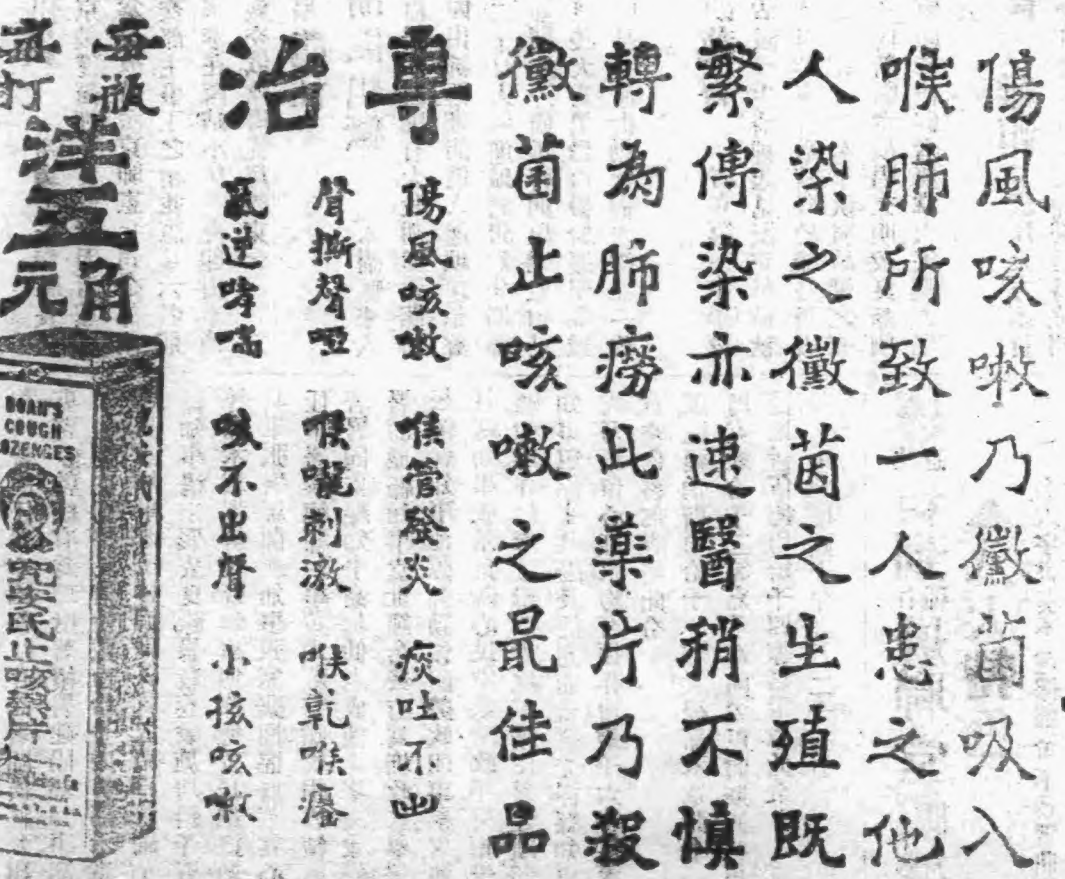 傷風咳嗽乃黴菌吸入
喉肺所致一人患之他
人染之黴菌之生殖既
繁傳染亦速醫稍不慎
轉為肺癆此藥片乃殺
黴菌止咳嗽之最佳品
專治
傷風咳嗽 喉管發炎 痰吐不出
聲撕聲啞 喉嚨刺激 喉乾喉癢
氣逆哮喘 咳不出聲 小孩咳嗽
每瓶 每打
洋五
角 元
DOAN'S
COUGH
OZENGES
兜安氏止咳藥片